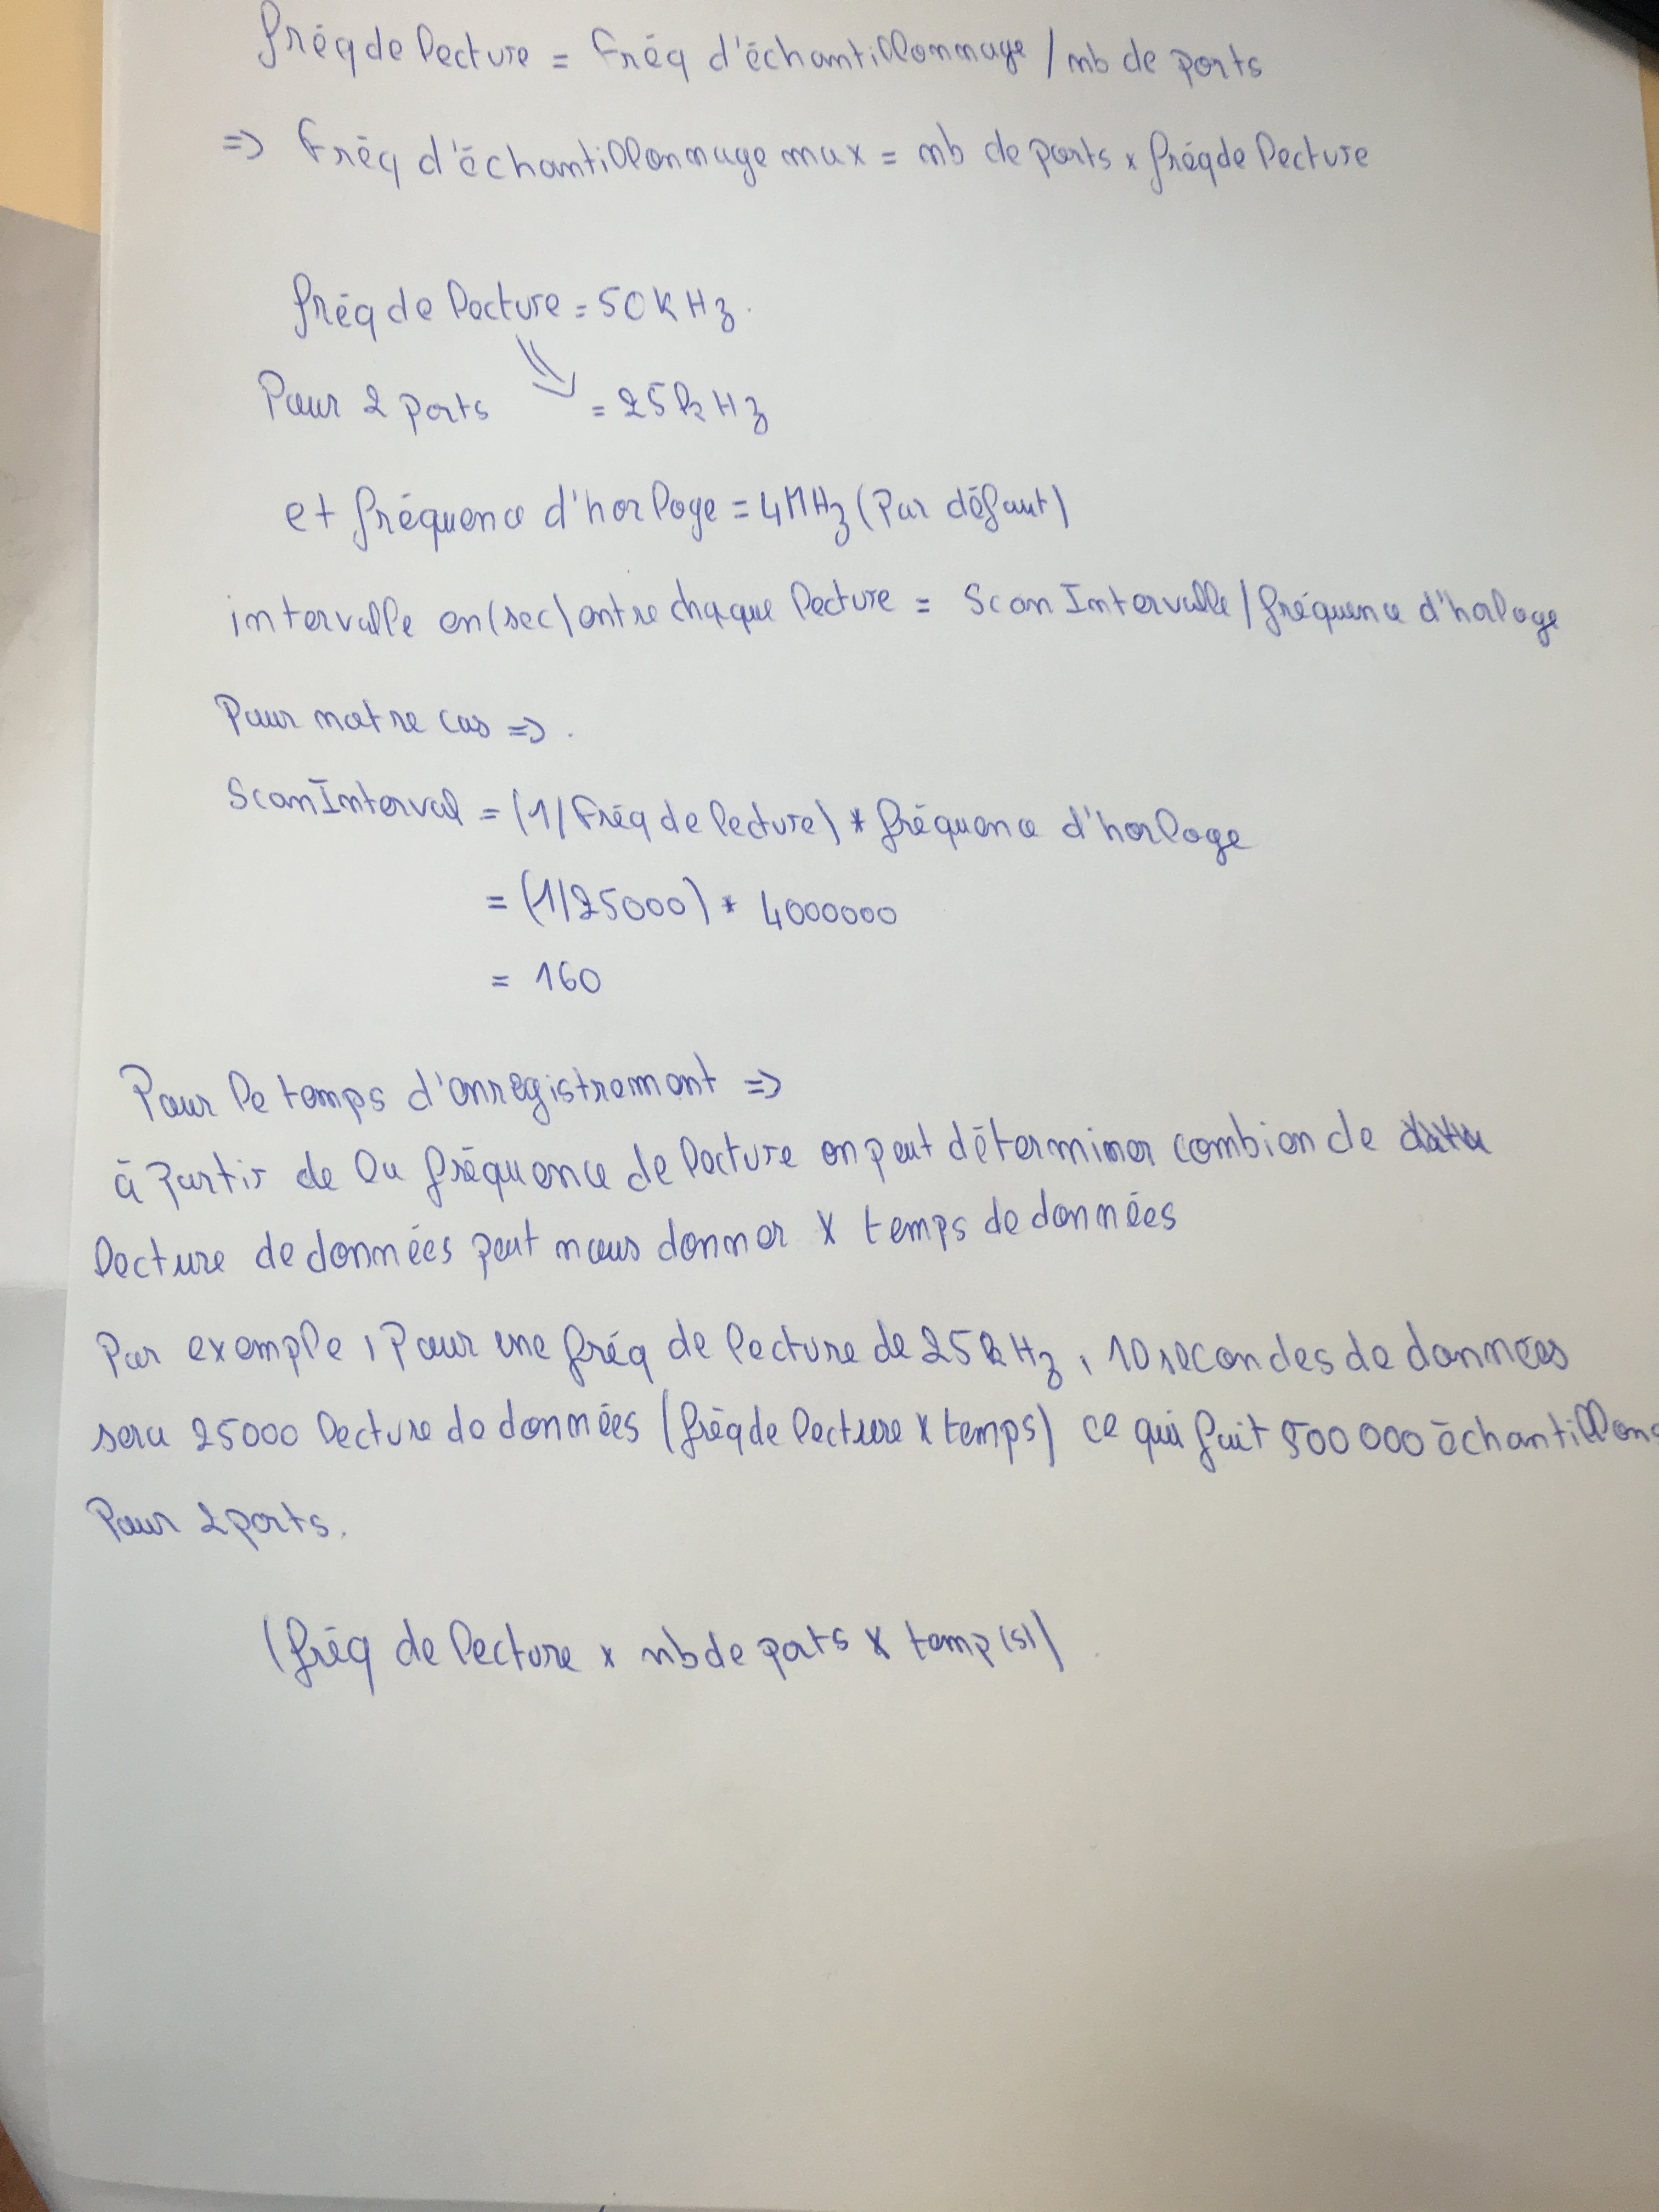 fréq de lecture = Fréq d'échantillonnage / nb de ports
=> Fréq d'échantillonnage max = nb de ports x fréq de lecture
fréq de lecture = 50 kHz.
Pour 2 ports = 25 kHz
et fréquence d'horloge = 4MHz (Par défaut)
intervalle en (sec) entre chaque lecture = Scan Intervalle / fréquence d'horloge
Pour notre cas => .
Scan Interval = (1/Fréq de lecture) * fréquence d'horloge
= (1/25000) * 4000000
= 160
Pour le temps d'enregistrement =>
à partir de la fréquence de lecture on peut déterminer combien de
lecture de données peut nous donner x temps de données
Par exemple, Pour une fréq de lecture de 25 kHz, 10 secondes de données
sera 25000 lecture de données (fréq de lecture x temps) ce qui fait 500 000 échantillons
Pour 2 ports.
(fréq de lecture x nb de ports x temp(s))